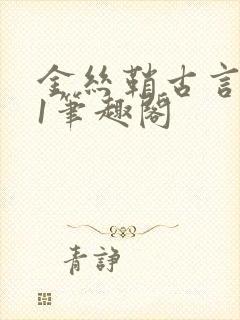 金丝鞘古言
1笔趣阁
青諍